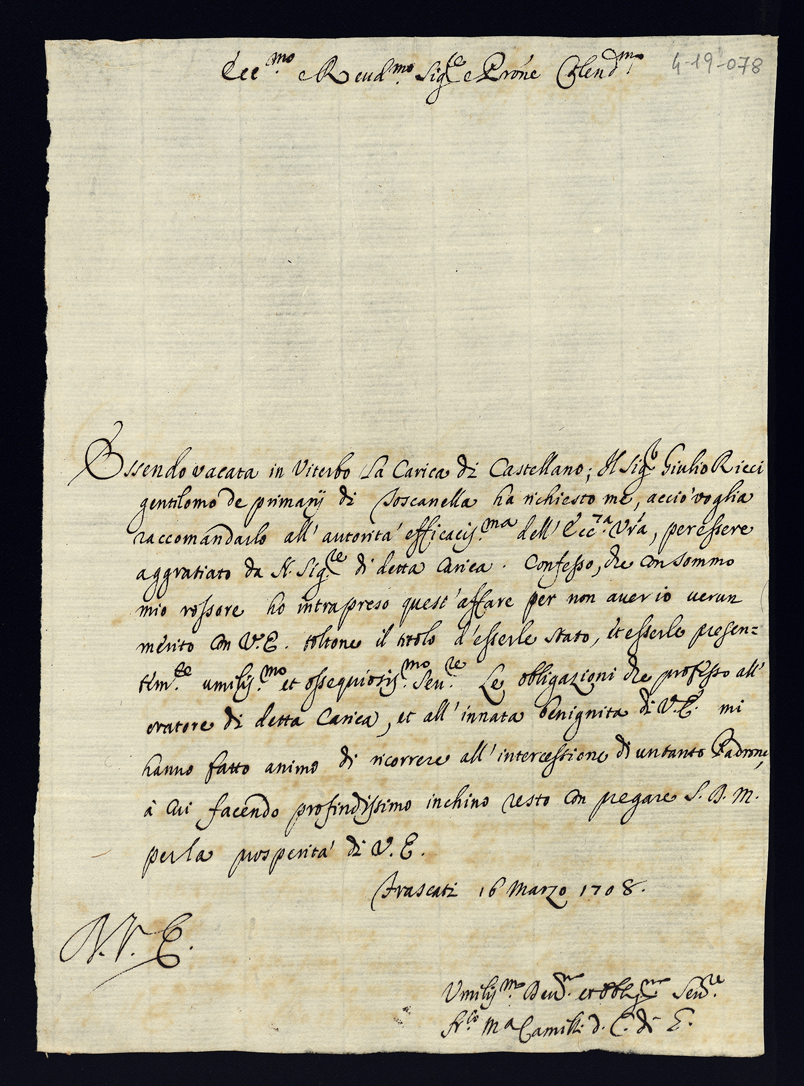 Ecc.mo e Reud.mo Sig.re e Prône Colend.mo
4-19-078
Essendo vacata in Viterbo La Carica di Castellano; Il Sig.r Giulio Ricci
gentilomo de primarij di Toscanella ha richiesto me, acciò voglia
raccomandarlo all' autorità efficacis.ma dell' Ecc.za Vrā, per essere
aggratiato da N. Sig.re di detta Carica. Confesso, che con sommo
mio rossore ho intrapreso quest' affare per non aver io uerun
merito con V.E. toltone il titolo d' esserle stato, et esserle presen=
tem.te umilis.mo et ossequiosis.mo Seru.re Le obligazioni che professo all'
oratore di detta Carica, et all' innata benignità di V.E. mi
hanno fatto animo di ricorrere all' intercessione di un tanto Padrone,
à cui facendo profindissimo inchino resto con pregare S. D. M.
per la prosperità di V.E.
Frascati 16 Marzo 1708.
V.E.
Umilis.mo Deu.mo et Obblig.mo Seru.re
Fr. Ma Camill. d. C. di E.